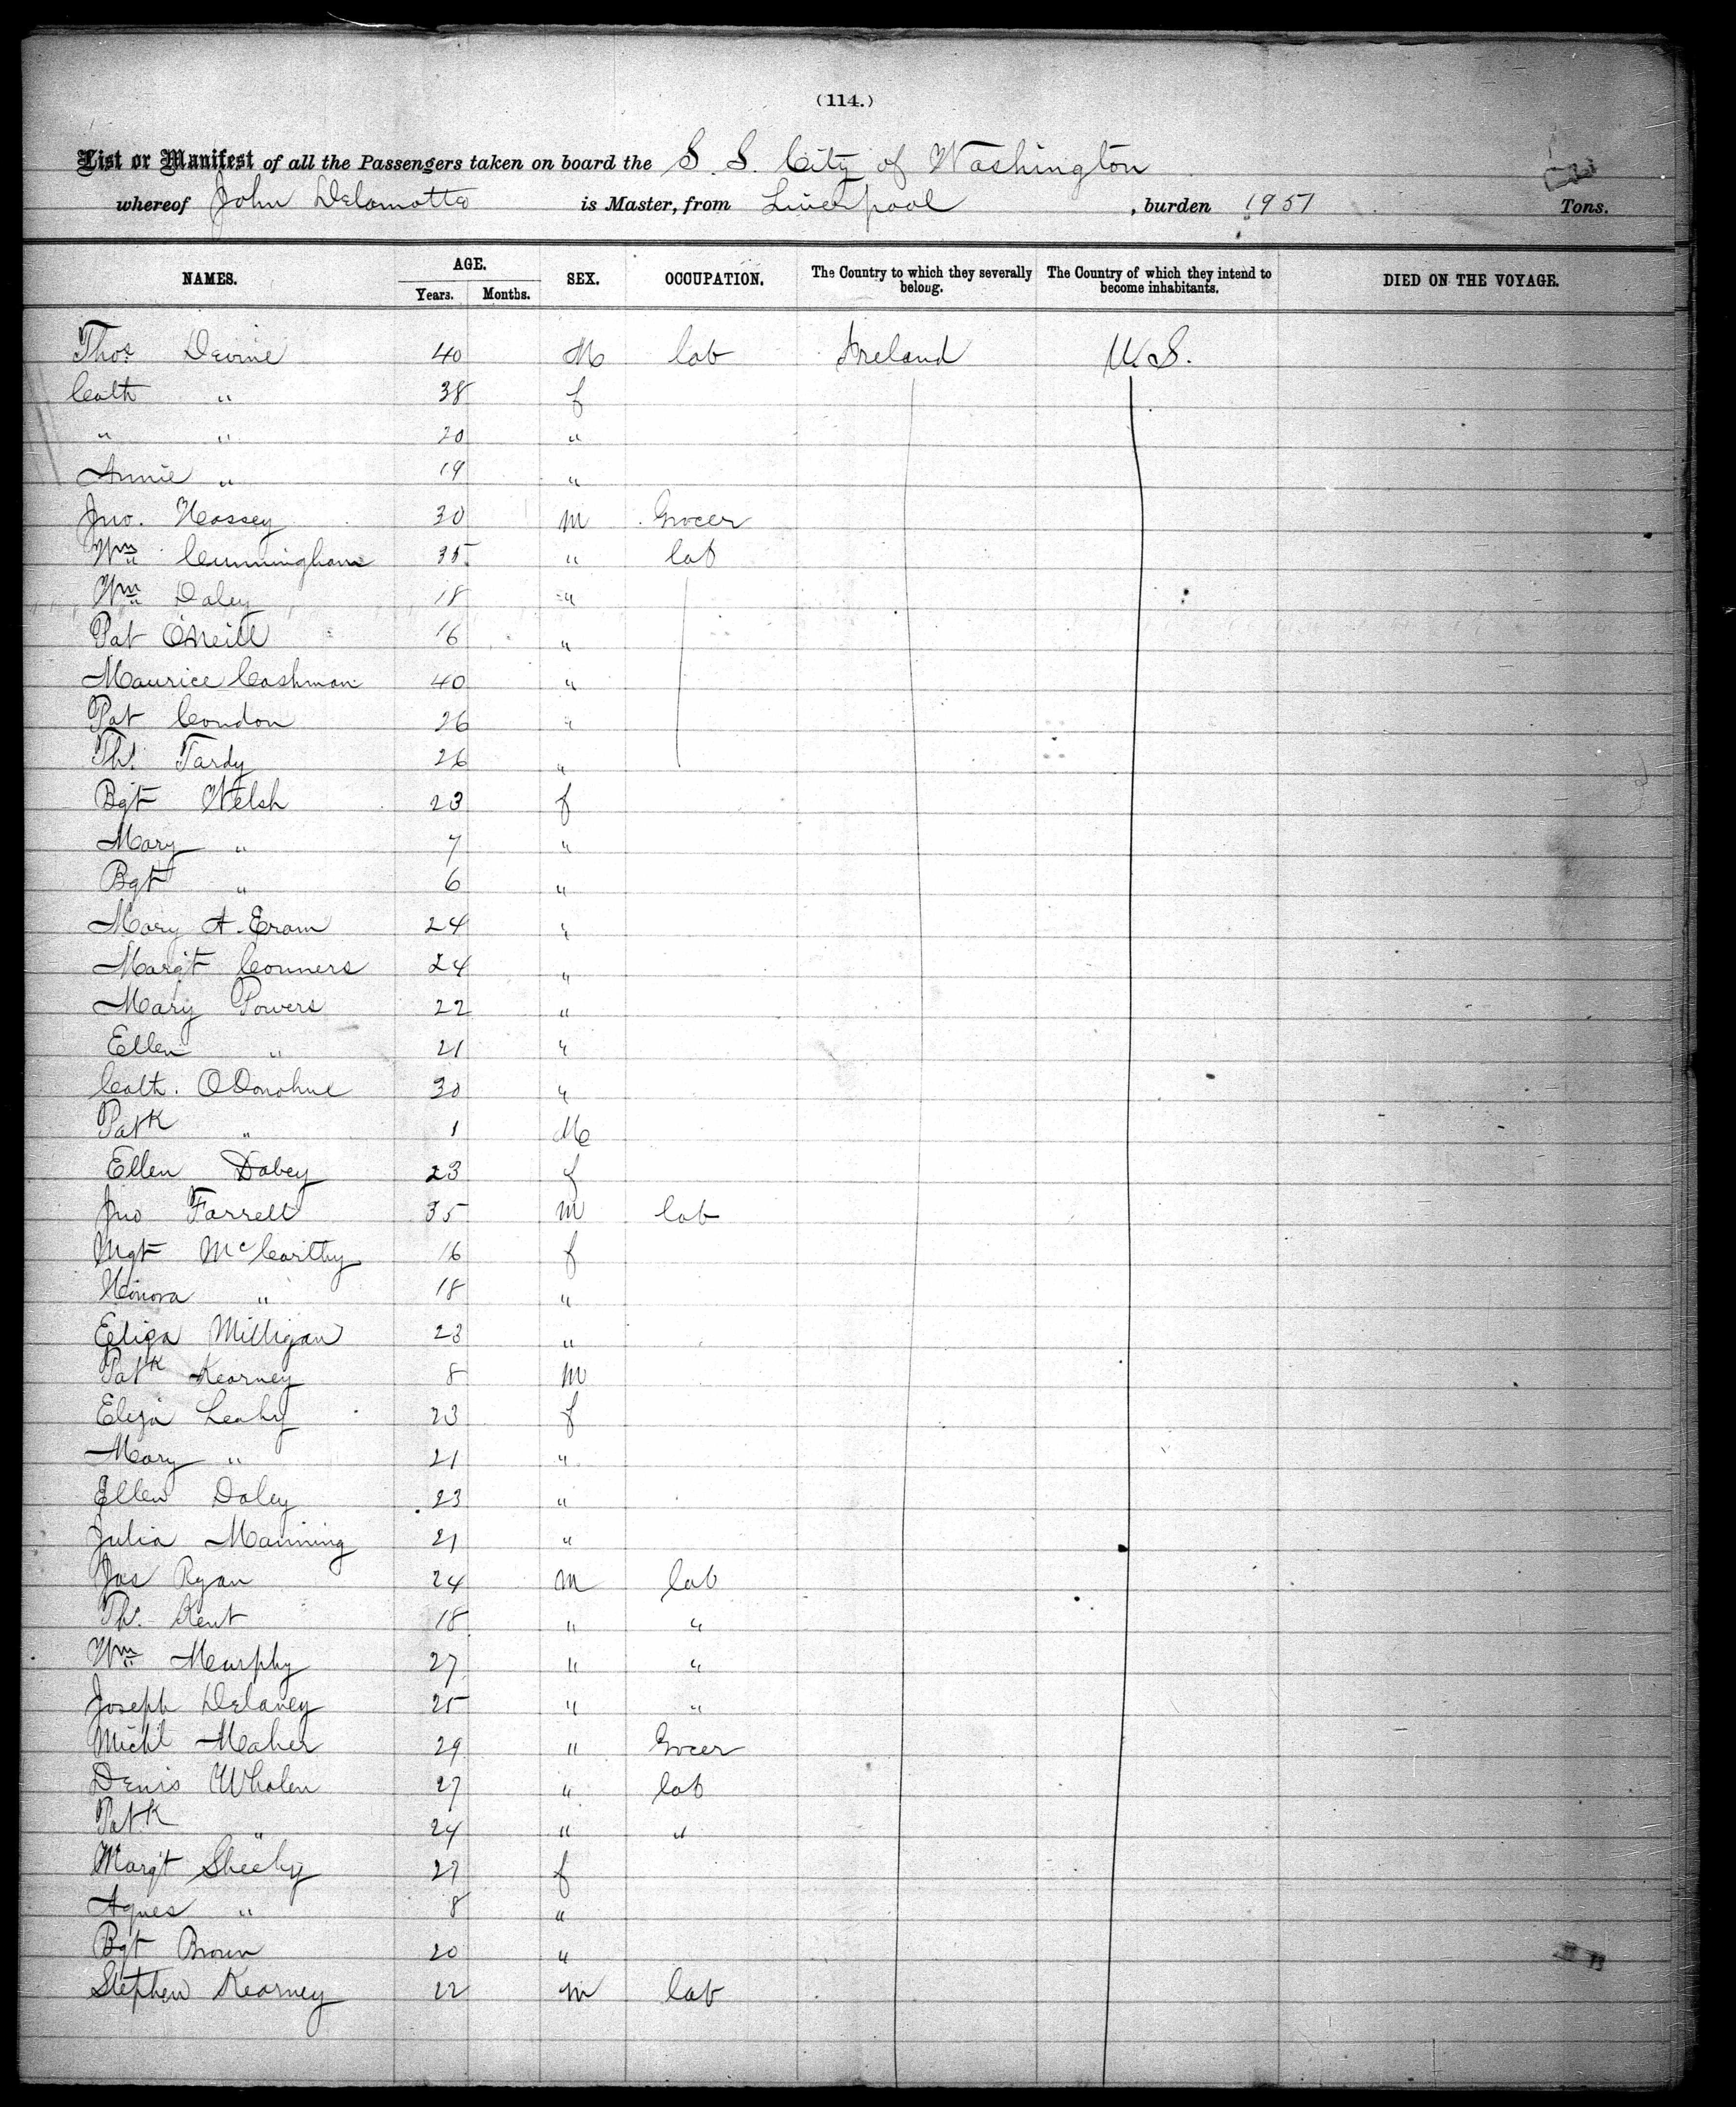 (114.)
List or Manifest of all the Passengers taken on board the S. S. City of Washington
whereof John Delamotte is Master, from Liverpool, burden 1951 Tons.
NAMES. AGE. Years. Months. SEX. OCCUPATION. The Country to which they severally belong. The Country of which they intend to become inhabitants. DIED ON THE VOYAGE.
Thos Devine 40 M lab Ireland U.S.
Cath " 38 f
" " 20 "
Annie " 19 "
Jno. Hassey 30 m Grocer
Wm Cunningham 35 " lab
Wm Daley 18 "
Pat O'Neill 16 "
Maurice Cashman 40 "
Pat Condon 26 "
Ths. Tardy 26 "
Bgt Welsh 23 f
Mary " 7 "
Bgt " 6 "
Mary A. Eram 24 "
Margt Conners 24 "
Mary Powers 22 "
Ellen " 21 "
Cath. O'Donohue 30 "
Patk " 1 M
Ellen Dabey 23 f
Jno Farrell 35 m lab
Mgt McCarthy 16 f
Honora " 18 "
Eliza Milligan 23 "
Patk Kearney 8 m
Eliza Leahy 23 f
Mary " 21 "
Ellen Daley 23 "
Julia Manning 21 "
Jas Ryan 24 m lab
Ths. Kent 18 " "
Wm Murphy 27 " "
Joseph Delaney 25 " "
Michl Maher 29 " Grocer
Denis Whalen 27 " lab
Patk " 24 " "
Margt Sheehy 27 f
Agnes " 8 "
Bgt Brown 20 "
Stephen Kearney 22 m lab